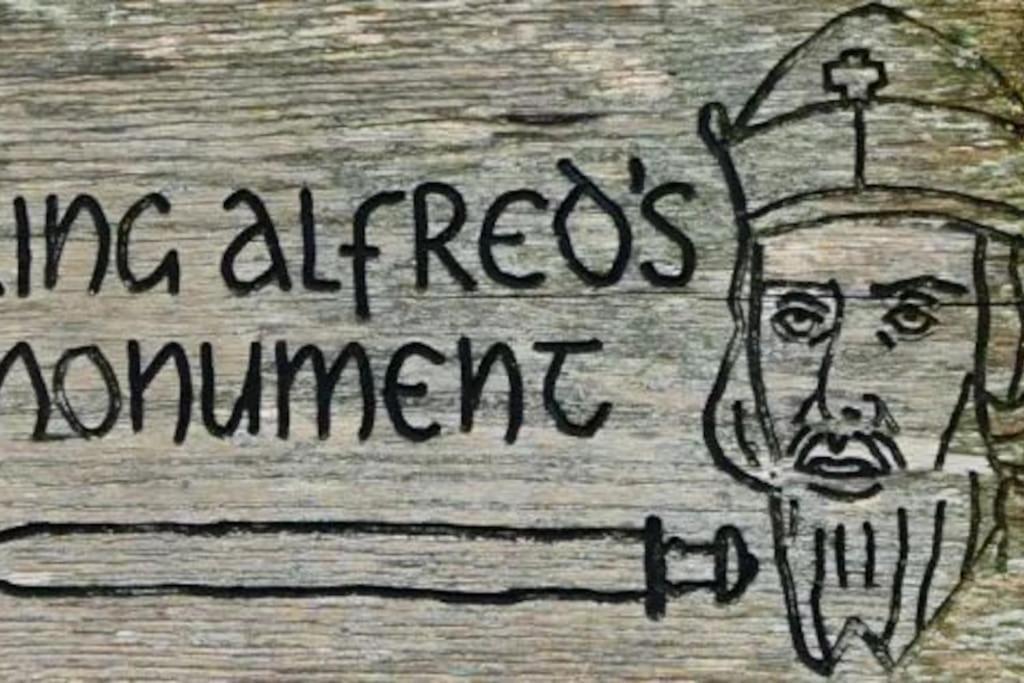 ING ALFRED'S
MONUMENT